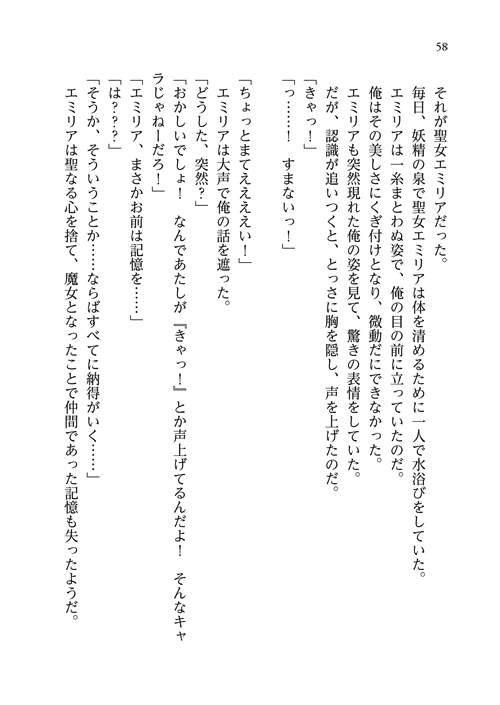 58
それが聖女エミリアだった。
毎日、妖精の泉で聖女エミリアは体を清めるために一人で水浴びをしていた。
エミリアは一糸まとわぬ姿で、俺の目の前に立っていたのだ。
俺はその美しさにくぎ付けとなり、微動だにできなかった。
エミリアも突然現れた俺の姿を見て、驚きの表情をしていた。
だが、認識が追いつくと、とっさに胸を隠し、声を上げたのだ。
「きゃっ！」
「っ……！　すまないっ！」
「ちょっとまてええええい！」
エミリアは大声で俺の話を遮った。
「どうした、突然？」
「おかしいでしょ！　なんであたしが『きゃっ！』とか声上げてるんだよ！　そんなキャ
ラじゃねーだろ！」
「エミリア、まさかお前は記憶を……」
「は？？？」
「そうか、そういうことか……ならばすべてに納得がいく……」
エミリアは聖なる心を捨て、魔女となったことで仲間であった記憶も失ったようだ。